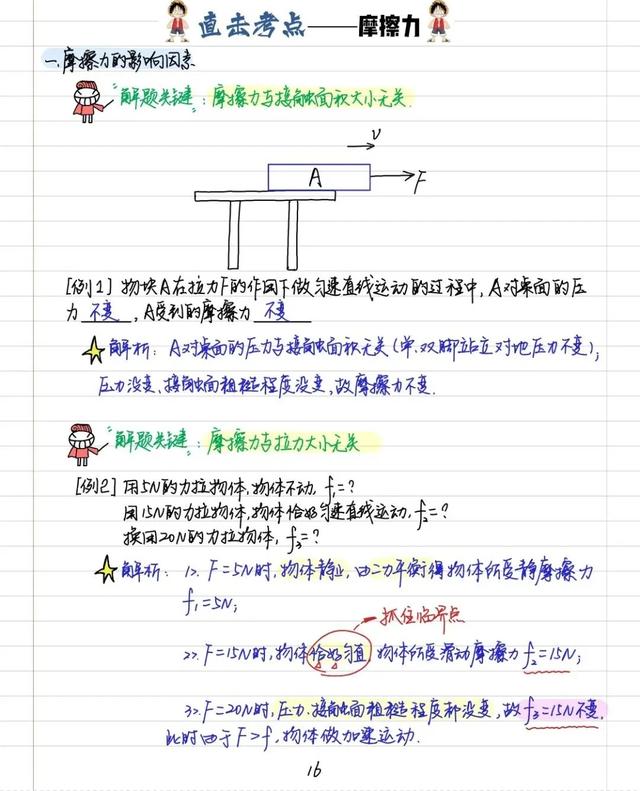 直击考点——摩擦力
一.摩擦力的影响因素
解题关键：摩擦力与接触面积大小无关.
v
A
F
[例1] 物块A在拉力F的作用下做匀速直线运动的过程中，A对桌面的压
力 不变 ，A受到的摩擦力 不变
解析：A对桌面的压力与接触面积无关(单.双脚站立对地压力不变)；
压力没变、接触面粗糙程度没变，故摩擦力不变.
解题关键：摩擦力与拉力大小无关
[例2] 用5N的力拉物体，物体不动，f₁=?
用15N的力拉物体，物体恰好匀速直线运动，f₂=?
换用20N的力拉物体，f₃=?
解析：1>. F=5N时，物体静止，由二力平衡得物体所受静摩擦力
f₁=5N;
抓住临界点
2>. F=15N时，物体恰好匀直，物体所受滑动摩擦力f₂=15N;
3>. F=20N时，压力.接触面粗糙程度都没变，故f₃=15N不变.
此时由于F>f，物体做加速运动.
16